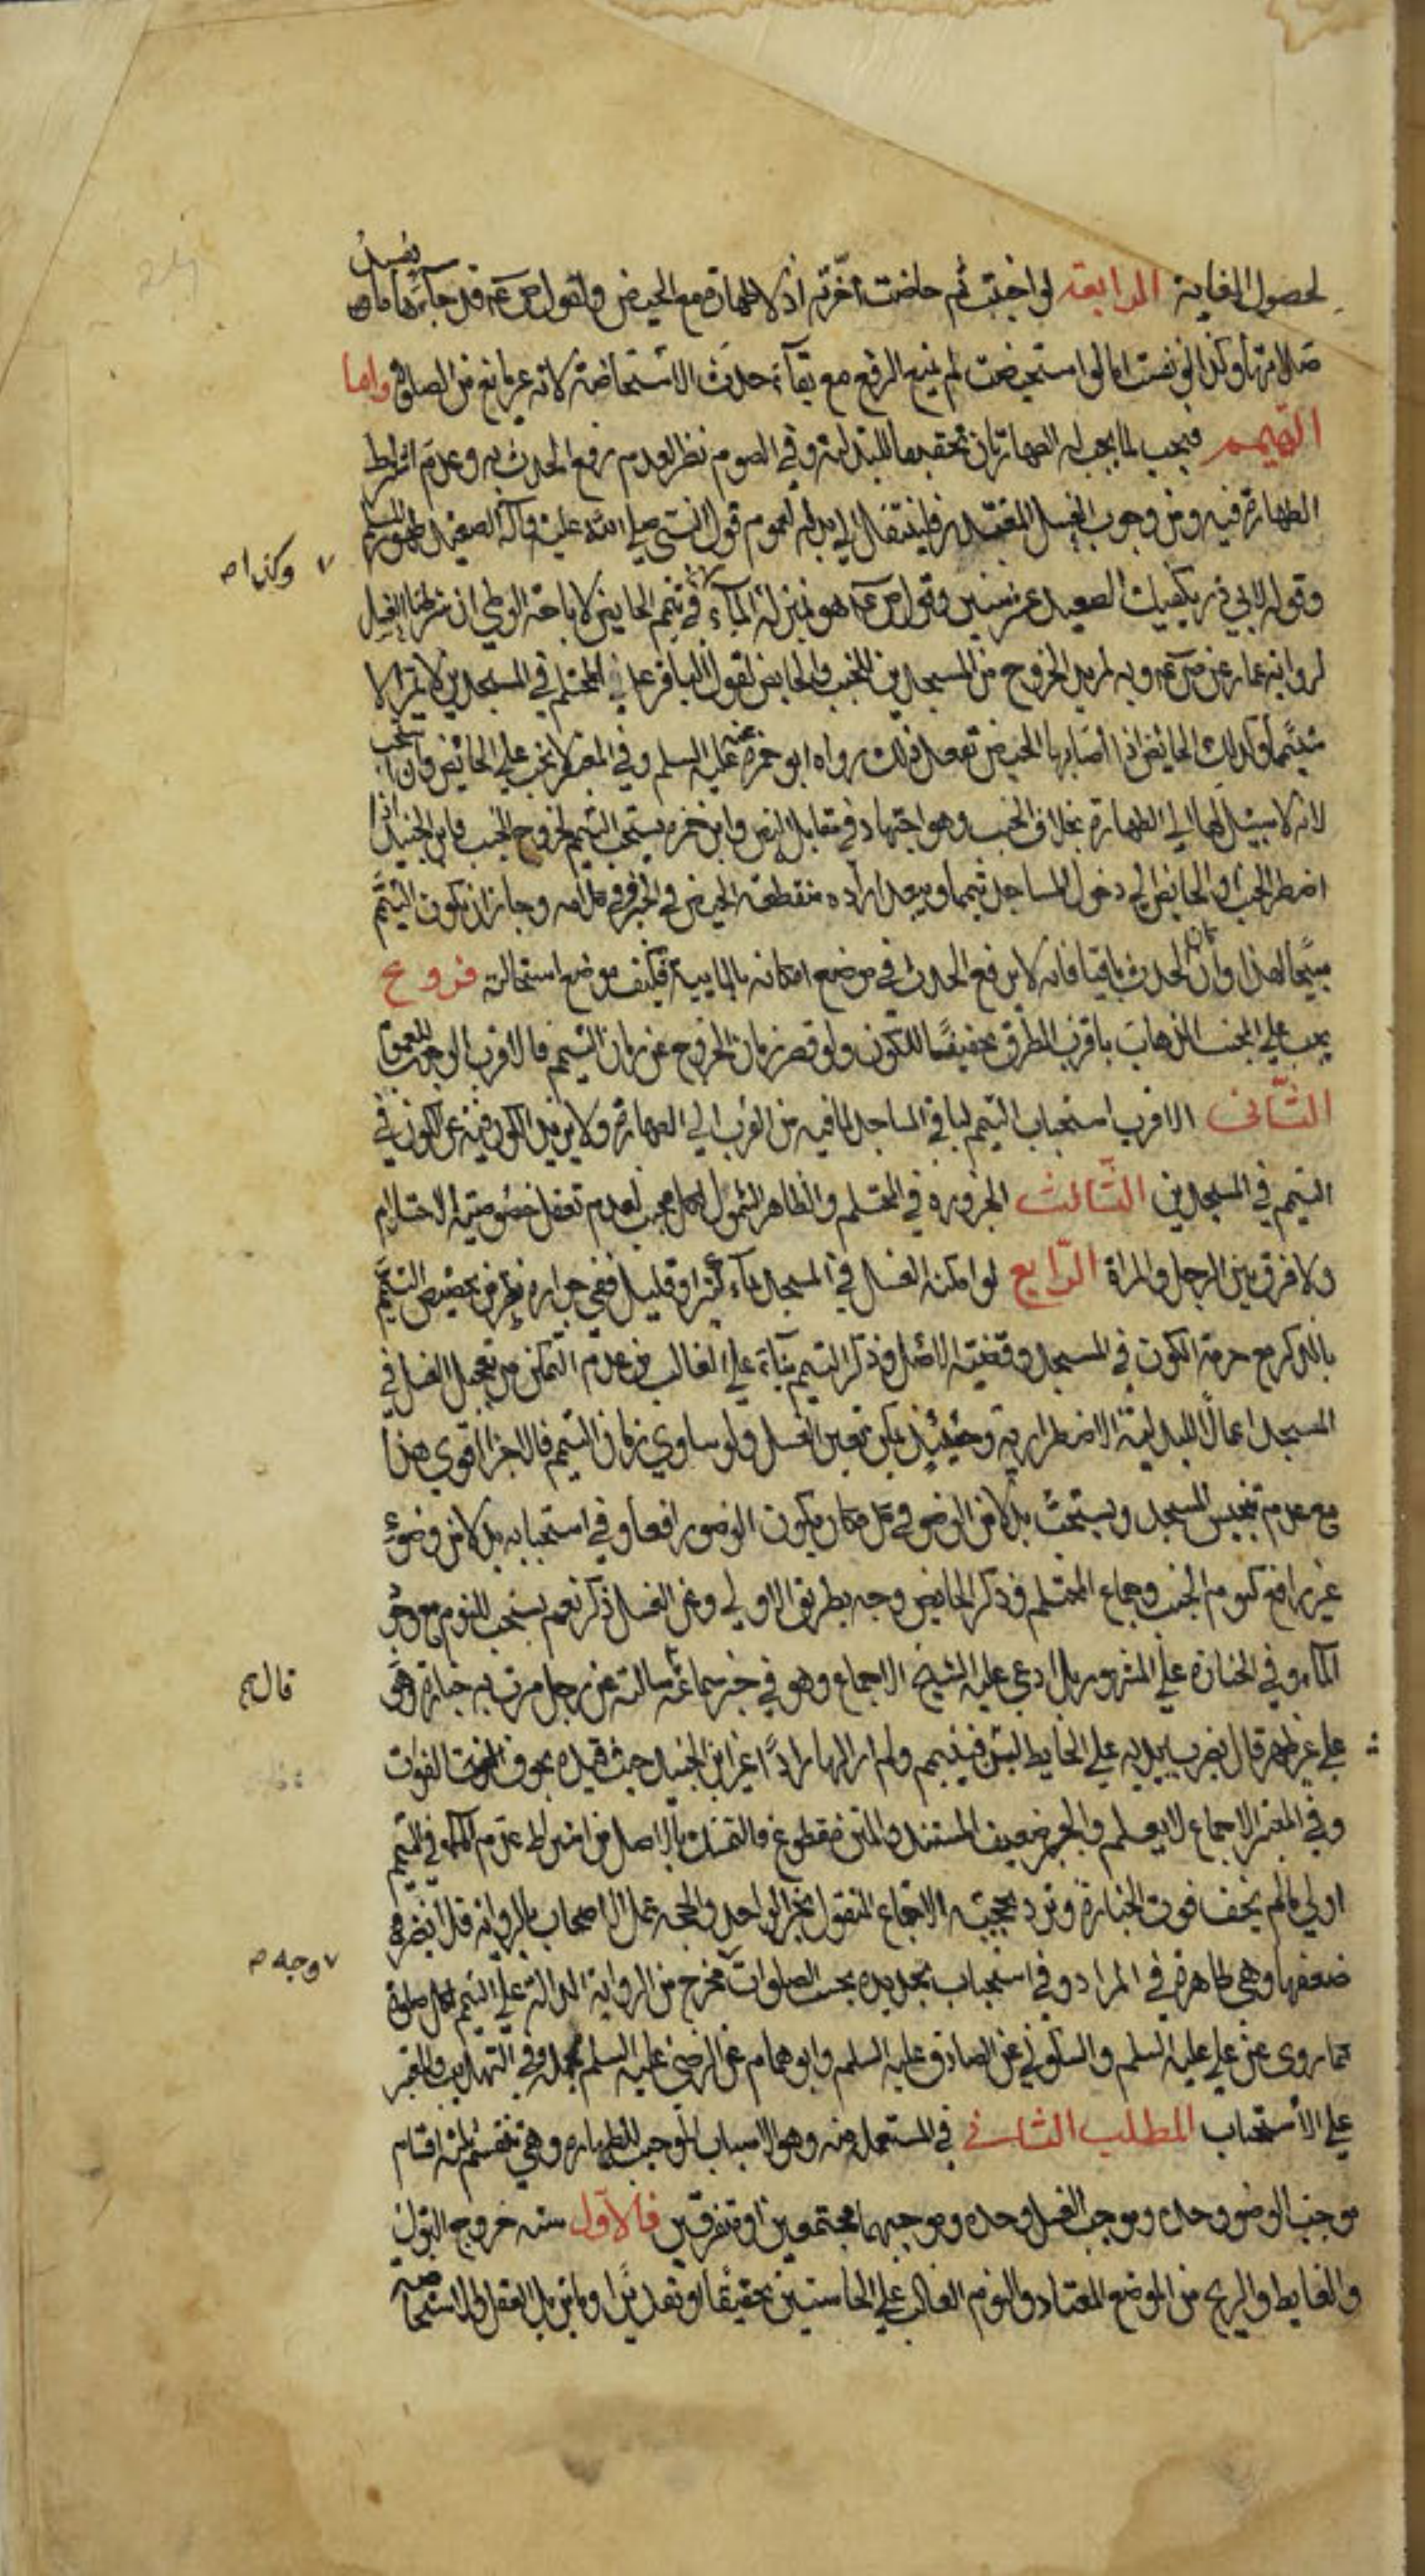 لحصول الغاية الرابعة لو اجنبت ثم حاضت اخّرته اذ لا طهارة مع الحيض ولقول ص ع قد جآءها ما يفسد
صلاتها وكذا لو نفست اما لو استحيضت لم يمنع الرفع مع بقآء حدث الاستحاضة لانه غير مانع من الصلوة واما
التيمم فيجب لما يجب له الطهارتان تحقيقا للبدلية وفي الصوم نظر لعدم رفع الحدث به وعدم اشتراط
الطهارة فيه ومن وجوب الغسل المتعذر فلينتقل الى بدله لعموم قول النبي صلى الله عليه وآله الصعيد طهور المسلم
وقوله لابي ذر يكفيك الصعيد عشر سنين وقول ص ع هو بمنزلة المآء في تيمم الحايض لاباحة الوطي ان شرطنا الغسل
لرواية عمار عن ص ع وبه لمريد الخروج من المسجدين للجنب والحايض لقول الباقر ع المحتلم في المسجدين لا يمر الا
متيمما وكذلك الحايض اذا اصابها الحيض تفعل ذلك رواه ابو حمزة عنه عليه السلم وفي المعتبر لا يجب على الحائض وان استحب
لانه لا سبيل لها الى الطهارة بخلاف الجنب وهو اجتهاد في مقابل النص وابن حمزه يستحب التيمم لخروج الجنب وابن الجنيد اذا
اضطر الجنب او الحايض الى دخول المساجد تيمما ويبعد ارادة منقطعة الحيض في الخبر وفي كلامه وجاز ان يكون التيمم
مبيحا لهذا وان كان الحدث باقيا فانه لا يرفع الحدث في موضع امكانه بالمايية فكيف موضع استحالته فروع
يجب على الجنب الذهاب باقرب الطرق تخفيفًا للكون ولو قصر زمان الخروج عن زمان التيمم فالاقرب الوجوب للعموم
الثاني الاقرب استحباب التيمم لباقي المساجد لما فيه من القرب الى الطهارة ولا يزيد الكون فيه عن الكون في
التيمم في المسجدين الثّالث الخبر ورد في المحتلم والظاهر الشمول لكل مجنب لعدم تعقل خصوصيّة الاحتلام
ولا فرق بين الرجل والمراة الرّابع لو امكنه الغسل في المسجد بمآء كثير او قليل ففي جوازه نظر من تخصيص التيمم
بالذكر مع حرمة الكون في المسجد وقضيّة الاصل وذكر التيمم بنآء على الغالب من عدم التمكن من تعجيل الغسل في
المسجد اعمالًا للبدلية الاضطرارية وحينئذ يمكن تعين الغسل ولو ساوى زمان التيمم فالاجزا اقوى هذا
مع عدم تنجيس المسجد ويستحب بدلا من الوضو في كل مكان يكون الوضو رافعا وفي استحبابه بدلا من وضوء
غير رافع كنوم الجنب وجماع المحتلم وذكر الحايض وجه بطريق الاولى وعن الغسل ذكر نعم يستحب للنوم مع وجو
المآء وفي الجنازة على المشهور بل ادعى عليه الشيخ الاجماع وهو في خبر سماعة سالته عن رجل مرت به جنازة وهو
على غير طهر قال يضرب بيديه على الحايط اللبن فيتيمم ولم ار لها رادًّا غير ابن الجنيد حيث قيده بخوف الفوت
وفي المعتبر الاجماع لا يعلم والخبر ضعيف المستند والمتن مقطوع فالتمسك بالاصل من اشتراط عدم المآء في التيمم
اولى ما لم يخف فوت الجنازة ونرد بحجيّة الاجماع المنقول بخبر الواحد والحجة عمل الاصحاب بالرواية فلا يضر
ضعفها وهي ظاهرة في المراد وفي استحباب تجديده بحسب الصلوات مخرج من الرواية الدالة على التيمم لكل صلوة
كما روى عن علي عليه السلم والسكوني عن الصادق عليه السلم وابو همام عن الرضى عليه السلم وحمله في التهذيب والمعتبر
على الاستحباب المطلب الثاني في المستعمل منه وهو الاسباب الموجبة للطهارة وهي تنقسم ثلثة اقسام
موجب الوضو وحده وموجب الغسل وحده وموجبهما مجتمعين او متفرقين فالاوّل ستة خروج البول
والغايط والريح من الموضع المعتاد والنوم الغالب على الحاستين تحقيقًا او تقديرًا ومزيل العقل والاستحاضة
وكذا ص
قال ع
وجه ص